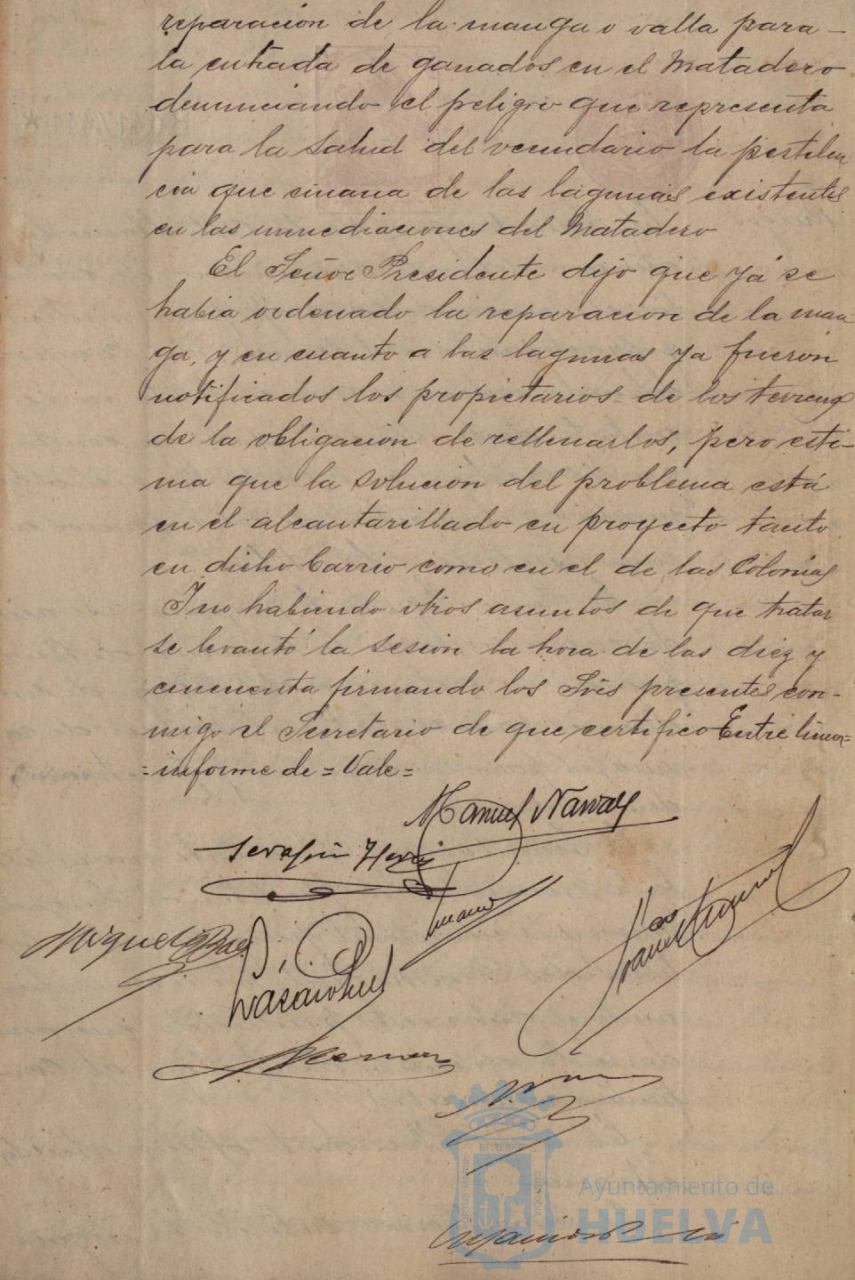 reparación de la manga o valla para
la entrada de ganados en el Matadero
denunciando el peligro que representa
para la salud del vecindario la pestilen
cia que emana de las lagunas existentes
en las inmediaciones del Matadero
El Señor Presidente dijo que yá se
habia ordenado la reparacion de la man
ga, y en cuanto a las lagunas ya fueron
notificados los propietarios de los terrenos
de la obligación de rellenarlos, pero esti-
ma que la solucion del problema está
en el alcantarillado en proyecto tanto
en dicho barrio como en el de las Colonias
Y no habiendo otros asuntos de que tratar
se levantó la sesion la hora de las diez y
cincuenta firmando los Sres presentes con-
migo el Secretario de que certifico Entre lineas=
=informe de=Vale=
Manuel Navarro
Serafin
Miguel
Ayuntamiento de
HUELVA